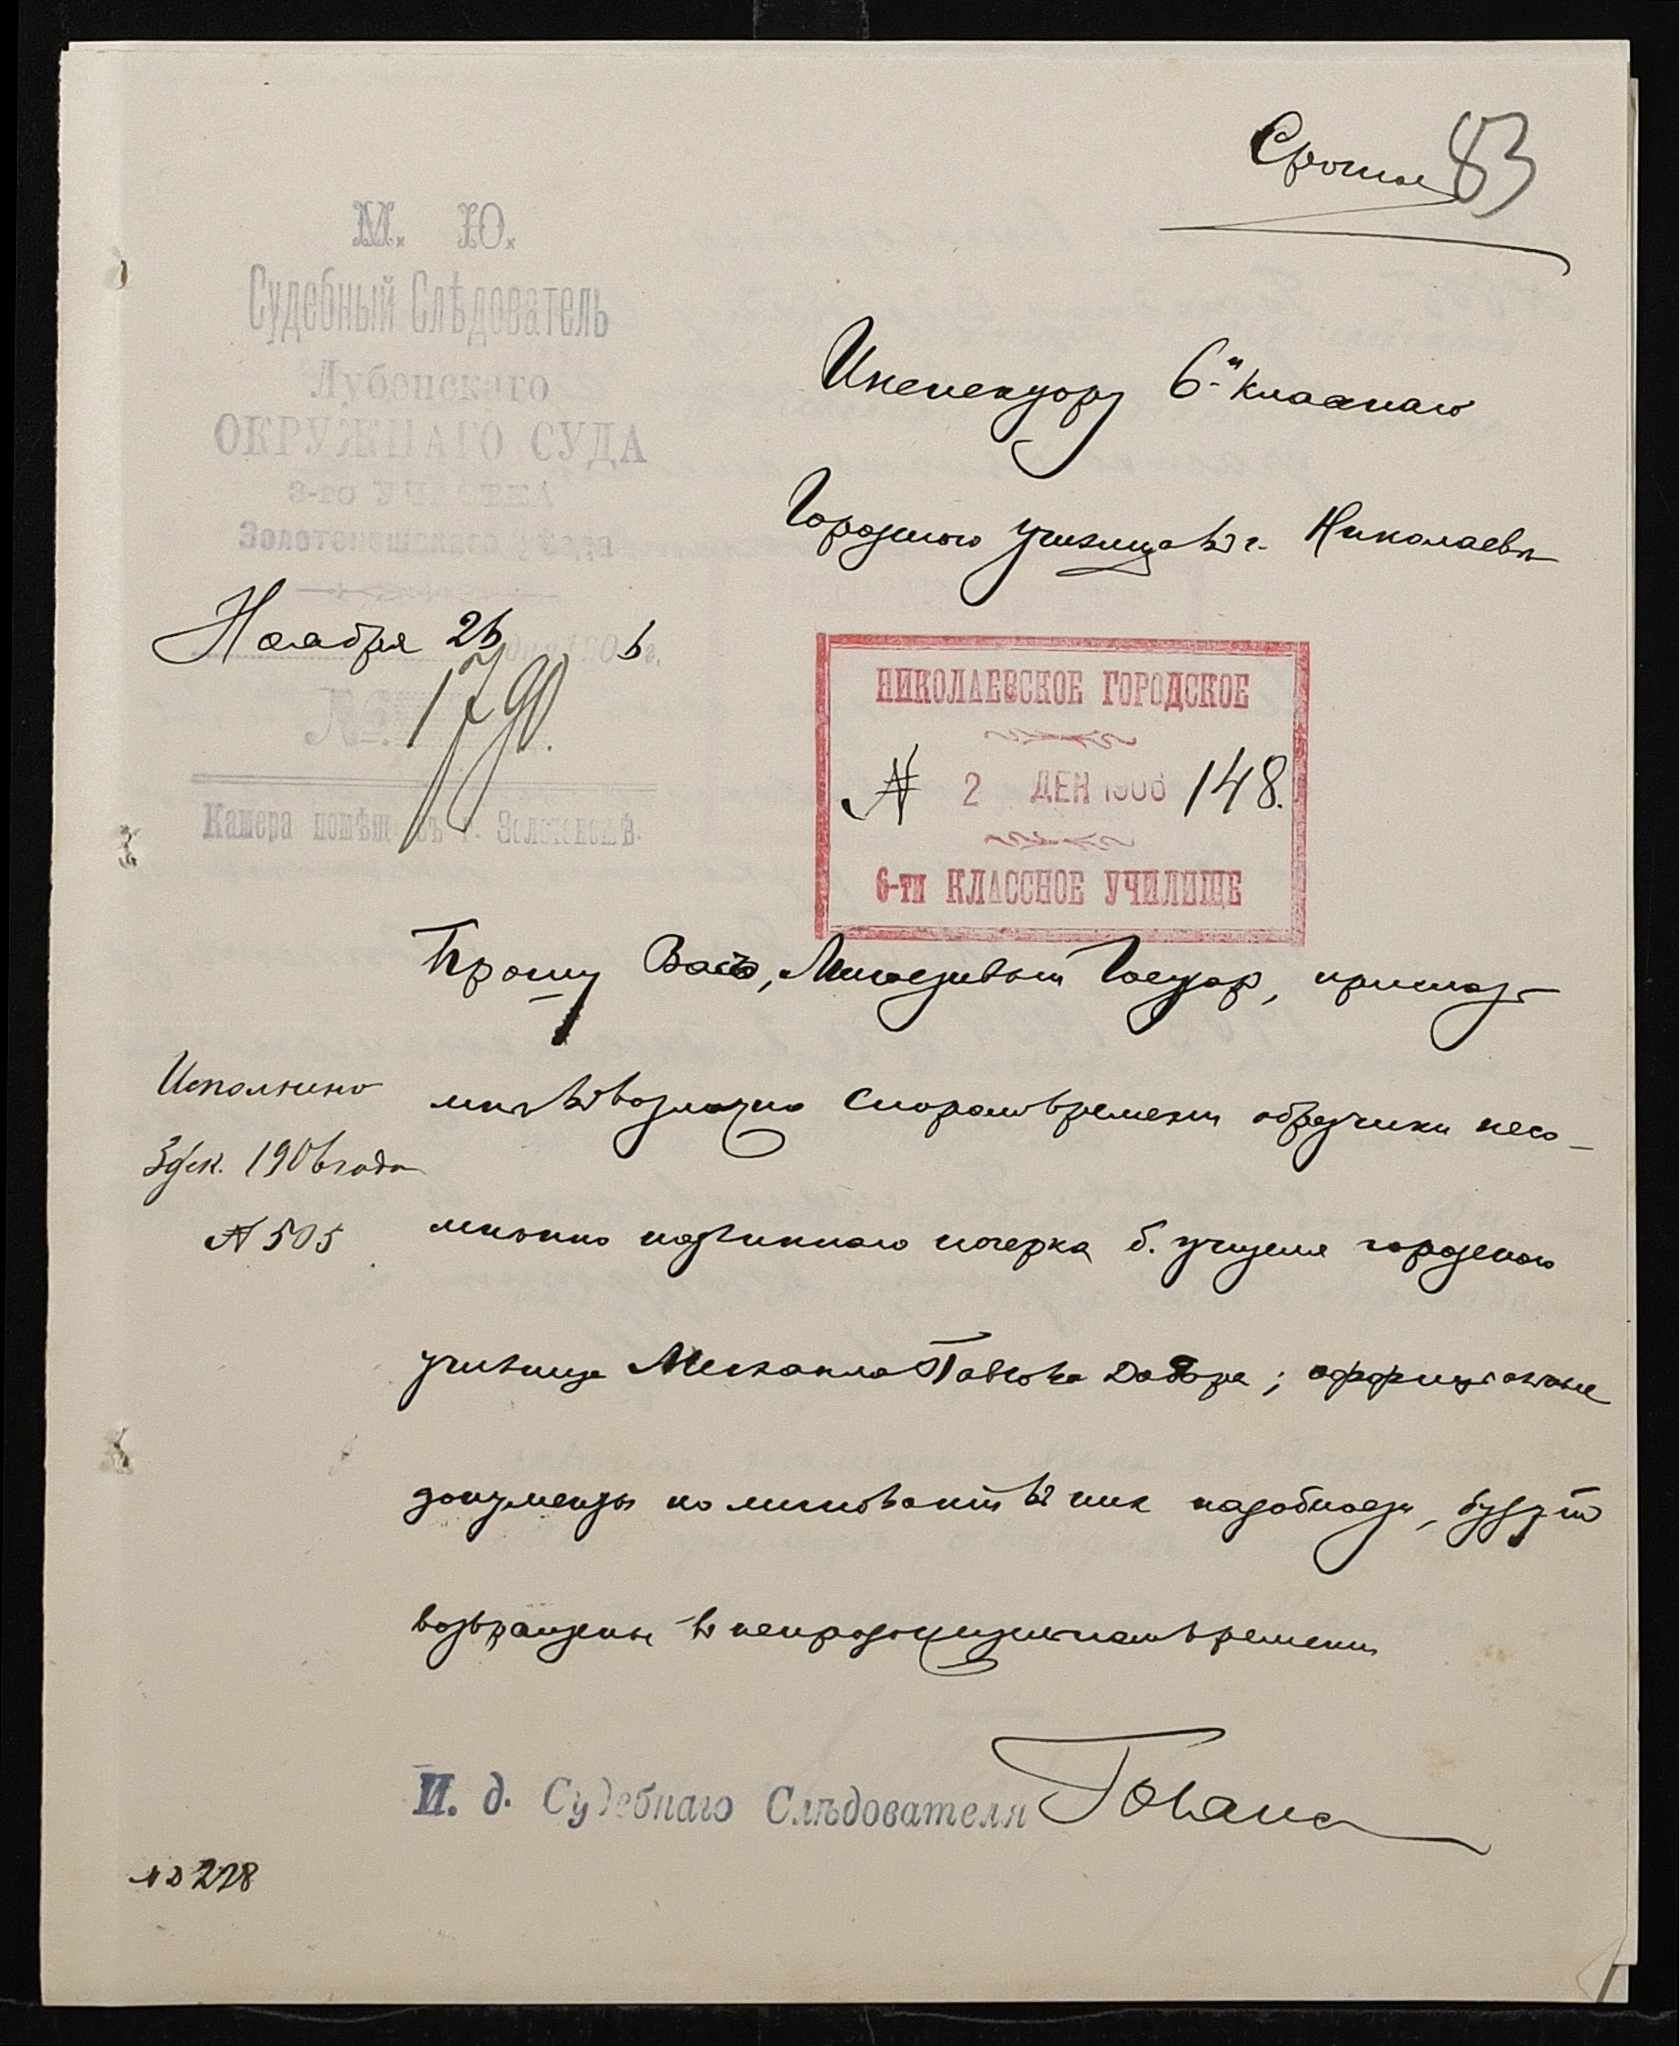 Срочное 83
М. Ю.
Судебный Слѣдователь
Лубенскаго
ОКРУЖНАГО СУДА
3-го УЧАСТКА
Золотоношскаго уѣзда
Ноября 26 дня 1906 г.
№ 1790.
Камера помѣщ. въ г. Золотоношѣ.
Инспектору 6-и класснаго
Городского училища въ г. Николаевѣ
НИКОЛАЕВСКОЕ ГОРОДСКОЕ
№ 2 ДЕК 1906 148.
6-ти КЛАССНОЕ УЧИЛИЩЕ
Прошу Васъ, Милостивый Государь, прислать
мнѣ въ возможно скоромъ времени образчики несо-
мнѣнно подлиннаго почерка б. учителя городского
училища Михаила Павлова
документы по миновании въ них надобности, будут
возвращены в непродолжительном времени
Исполнено
3 дек. 1906 года
№ 505
И. д. Судебнаго Слѣдователя
№ д 228